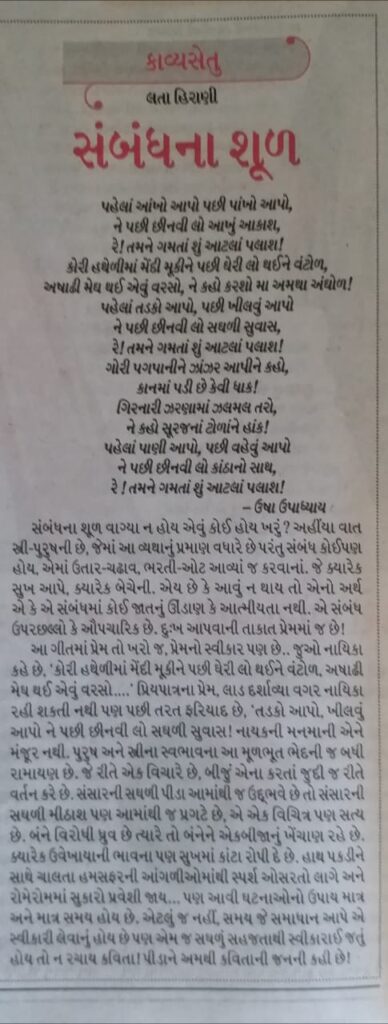 કાવ્યસેતુ
લતા હિરાણી
સંબંધના શૂળ
પહેલાં આંખો આપો પછી પાંખો આપો,
ને પછી છીનવી લો આખું આકાશ,
રે! તમને ગમતાં શું આટલાં પલાશ!
કોરી હથેળીમાં મેંદી મૂકીને પછી ઘેરી લો થઈને વંટોળ,
અષાઢી મેઘ થઈ એવું વરસો, ને કહો કરશો મા અમથા અંઘોળ!
પહેલાં તડકો આપો, પછી ખીલવું આપો
ને પછી છીનવી લો સઘળી સુવાસ,
રે! તમને ગમતાં શું આટલાં પલાશ!
ગોરી પગપાનીને ઝાંઝર આપીને કહો,
કાનમાં પડી છે કેવી ધાક!
ગિરનારી ઝરણામાં ઝલમલ તરો,
ને કહો સૂરજનાં ટોળાંને હાંક!
પહેલાં પાણી આપો, પછી વહેવું આપો
ને પછી છીનવી લો કાંઠાનો સાથ,
રે ! તમને ગમતાં શું આટલાં પલાશ!
– ઉષા ઉપાધ્યાય
સંબંધના શૂળ વાગ્યા ન હોય એવું કોઈ હોય ખરું? અહીંયા વાત
સ્ત્રી-પુરુષની છે, જેમાં આ વ્યથાનું પ્રમાણ વધારે છે પરંતુ સંબંધ કોઈપણ
હોય, એમાં ઉતાર-ચઢાવ, ભરતી-ઓટ આવ્યાં જ કરવાનાં. જે ક્યારેક
સુખ આપે, ક્યારેક બેચેની. એય છે કે આવું ન થાય તો એનો અર્થ
એ કે એ સંબંધમાં કોઈ જાતનું ઊંડાણ કે આત્મીયતા નથી. એ સંબંધ
ઉપરછલ્લો કે ઔપચારિક છે. દુઃખ આપવાની તાકાત પ્રેમમાં જ છે!
આ ગીતમાં પ્રેમ તો ખરો જ, પ્રેમનો સ્વીકાર પણ છે.. જુઓ નાયિકા
કહે છે, 'કોરી હથેળીમાં મેંદી મૂકીને પછી ઘેરી લો થઈને વંટોળ, અષાઢી
મેઘ થઈ એવું વરસો....' પ્રિયપાત્રના પ્રેમ, લાડ દર્શાવ્યા વગર નાયિકા
રહી શકતી નથી પણ પછી તરત ફરિયાદ છે, 'તડકો આપો, ખીલવું
આપો ને પછી છીનવી લો સઘળી સુવાસ! નાયકની મનમાની એને
મંજૂર નથી. પુરુષ અને સ્ત્રીના સ્વભાવના આ મૂળભૂત ભેદની જ બધી
રામાયણ છે. જે રીતે એક વિચારે છે, બીજું એના કરતાં જુદી જ રીતે
વર્તન કરે છે. સંસારની સઘળી પીડા આમાંથી જ ઉદ્દભવે છે તો સંસારની
સઘળી મીઠાશ પણ આમાંથી જ પ્રગટે છે, એ એક વિચિત્ર પણ સત્ય
છે. બંને વિરોધી ધ્રુવ છે ત્યારે તો બંનેને એકબીજાનું ખેંચાણ રહે છે.
ક્યારેક ઉવેખાયાની ભાવના પણ સુખમાં કાંટા રોપી દે છે. હાથ પકડીને
સાથે ચાલતા હમસફરની આંગળીઓમાંથી સ્પર્શ ઓસરતો લાગે અને
રોમેરોમમાં સુકારો પ્રવેશી જાય... પણ આવી ઘટનાઓનો ઉપાય માત્ર
અને માત્ર સમય હોય છે. એટલું જ નહીં, સમય જે સમાધાન આપે એ
સ્વીકારી લેવાનું હોય છે પણ એમ જ સઘળું સહજતાથી સ્વીકારાઈ જતું
હોય તો ન રચાય કવિતા! પીડાને અમથી કવિતાની જનની કહી છે!